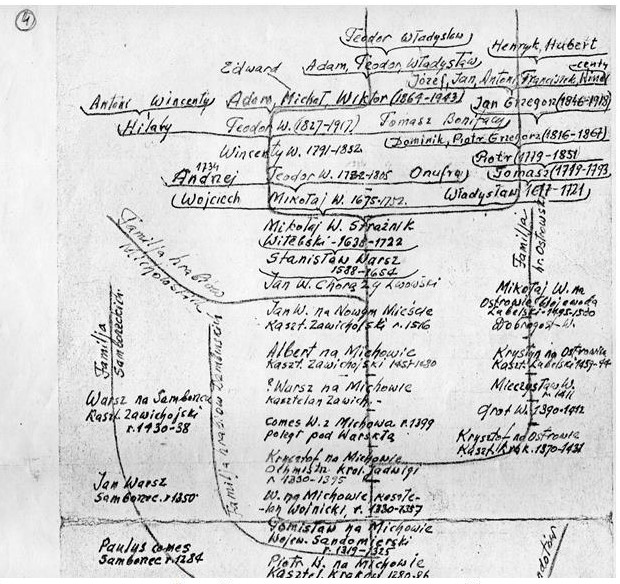 4
Teodor Władysław
Henryk, Hubert
Adam, Teodor, Władysław
Edward
Józef, Jan, Antoni, Franciszek,
centy
Antoni Wincenty
Adam, Michał, Wiktor (1864-1943)
Jan Grzegorz (1846-1918)
Hilary
Teodor W. (1827-1917)
Tomasz Bonifacy
Dominik, Piotr, Grzegorz (1816-1867)
Wincenty W. 1791-1852
Piotr (1779-1851
1734
Andrzej
Teodor W. 1732-1805
Onufry
Tomasz (1719-1793
Wojciech
Mikołaj W. 1675-1752.
Władysław 1677-1721
Mikołaj W. Strażnik
Witebski-1638-1722
Stanisław Warsz
1588-1654
Jan W. Chorąży Lwowski
Familja hrabiów
Michowskich
Familja
hr. Ostrowskich
Jan W. na Nowym Mieście
Kaszt. Zawichojski r. 1516
Mikołaj W. na
Ostrowie Wojewoda
Lubelski-1495-1500
Dobrogost-W.
Familja
Samboreckich
Albert na Michowie
Kaszt. Zawichojski 1457-1480
Krystyn na Ostrowie
Kaszt. Lubelski 1459-
Warsz na Samborcu
Kaszt. Zawichojski
r. 1430-38
? Warsz na Michowie
Kasztelan Zawich. -
Mieczysław W.
r. 1411
Familja hrabiów
comes W. z Michowa r. 1399
poległ pod Warskłą
Grot W. 1390-1412
Krysztof na Ostrowie
Kaszt. Krak. 1870-1431
Krysztof na Michowie
Ochmistr. Krol. Jadwigi
r 1330-1395
Jan Warsz
Samborzec. r. 1350
W. na Michowie Kaszte-
lan Wojnicki, r. 1330-1337
Gomisław na Michowie
Wojew. Sandomierski
r. 1319-1325
Paulus comes
Samborzec r. 1284
Piotr W. na Michowie
Kasztel. Kraków 1280-86